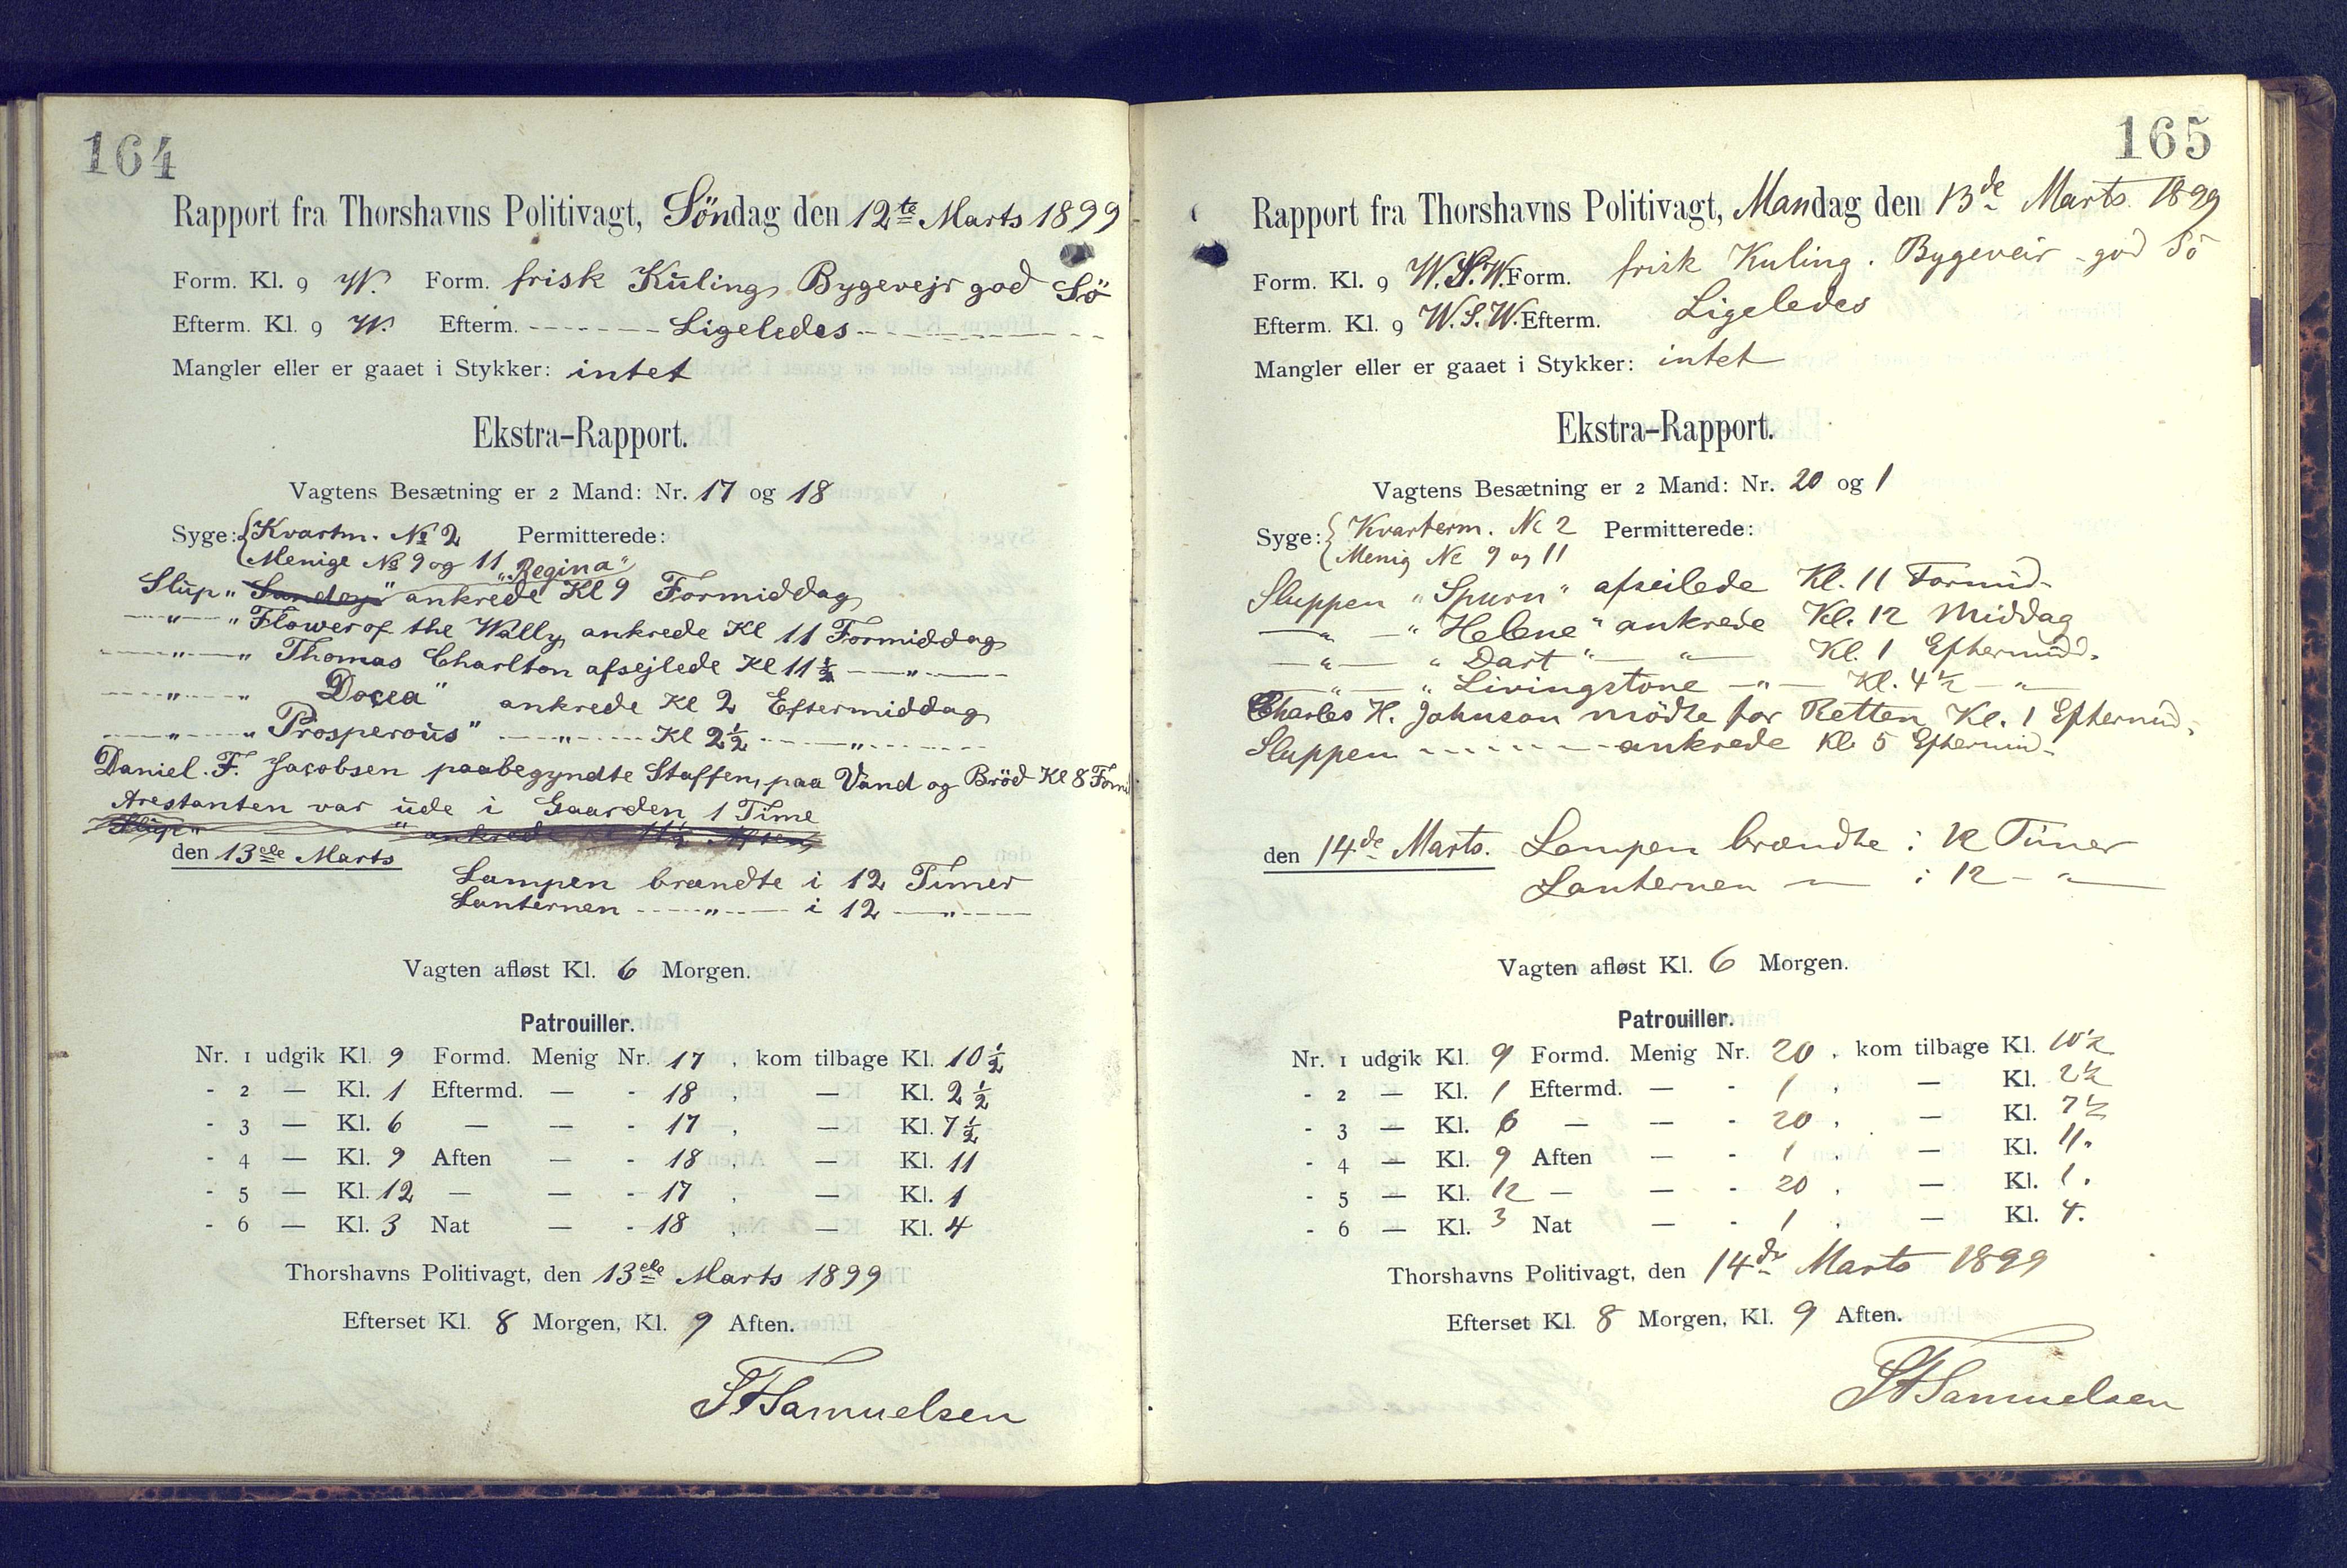 164
Rapport fra Thorshavns Politivagt, Söndag den 12te Marts 1899
Form. Kl. 9 W. Form. frisk Kuling Bygevejr god Sö
Efterm. Kl. 9 W. Efterm. - - - - - - - Ligeledes - - - - - - -
Mangler eller er gaaet i Stykker: intet
Ekstra-Rapport.
Vagtens Besætning er 2 Mand: Nr. 17 og 18
Syge: Kvartm. No 2 Permitterede:
Menige No 9 og 11
"Regina"
Slup "Sandoy" ankrede Kl 9 Formiddag
—"— "Flower of the Wally ankrede Kl 11 Formiddag
—"— " Thomas Charlton afsejlede Kl 11½ —"—
—"— " Docea" ankrede Kl 2 Eftermiddag
—"— " Prosperous" —"— Kl 2½ —"—
Daniel. F. Jacobsen paabegyndte Staffen, paa Vand og Bröd Kl 8 Formd
Arestanten var ude i Gaarden 1 Time
Slup " " ankrede Kl 11½ Aften
den 13de Marts
Lampen brændte i 12 Timer
Lanternen —"— i 12 —"—
Vagten afløst Kl. 6 Morgen.
Patrouiller.
Nr. 1 udgik Kl. 9 Formd. Menig Nr. 17, kom tilbage Kl. 10½
- 2 — Kl. 1 Eftermd. — - 18, — Kl. 2½
- 3 — Kl. 6 — — - 17, — Kl. 7½
- 4 — Kl. 9 Aften — - 18, — Kl. 11
- 5 — Kl. 12 — — - 17, — Kl. 1
- 6 — Kl. 3 Nat — - 18, — Kl. 4
Thorshavns Politivagt, den 13de Marts 1899
Efterset Kl. 8 Morgen, Kl. 9 Aften.
SFSamuelsen
165
Rapport fra Thorshavns Politivagt, Mandag den 13de Marts. 1899
Form. Kl. 9 W.S.W. Form. frisk Kuling. Bygeveir - god Sö
Efterm. Kl. 9 W.S.W. Efterm. Ligeledes
Mangler eller er gaaet i Stykker: intet
Ekstra-Rapport.
Vagtens Besætning er 2 Mand: Nr. 20 og 1
Syge: Kvarterm. No 2 Permitterede:
Menig No 9 og 11
Sluppen "Spurn" afseilede Kl. 11 Formid-
—"— "Helene" ankrede Kl. 12 Middag
—"— "Dart" —"— Kl. 1 Eftermidd.
—"— "Livingstone —"— Kl. 4½ —"—
Charles H. Johnson mödte for Retten Kl. 1 Eftermid.
Sluppen - - - - - - ankrede Kl 5 Eftermid-
den 14de Marts. Lampen brændte i 12 Timer
Lanternen —"— i 12 —"—
Vagten afløst Kl. 6 Morgen.
Patrouiller.
Nr. 1 udgik Kl. 9 Formd. Menig Nr. 20, kom tilbage Kl. 10½
- 2 — Kl. 1 Eftermd. — - 1, — Kl. 2½
- 3 — Kl. 6 — — - 20, — Kl. 7½
- 4 — Kl. 9 Aften — - 1, — Kl. 11.
- 5 — Kl. 12 — — - 20, — Kl. 1.
- 6 — Kl. 3 Nat — - 1, — Kl. 4.
Thorshavns Politivagt, den 14de Marts 1899
Efterset Kl. 8 Morgen, Kl. 9 Aften.
SFSamuelsen